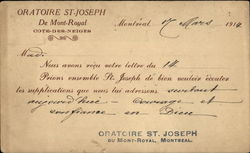 ORATOIRE ST-JOSEPH
De Mont-Royal
COTE-DES-NEIGES
Montréal 17 Mars 1914
Mad.
Nous avons reçu votre lettre du 14
Prions ensemble St. Joseph de bien vouloir écouter
les supplications que nous lui adressons surtout
aujourd'hui - Courage et
confiance en Dieu
ORATOIRE ST. JOSEPH
DU MONT-ROYAL, MONTREAL.